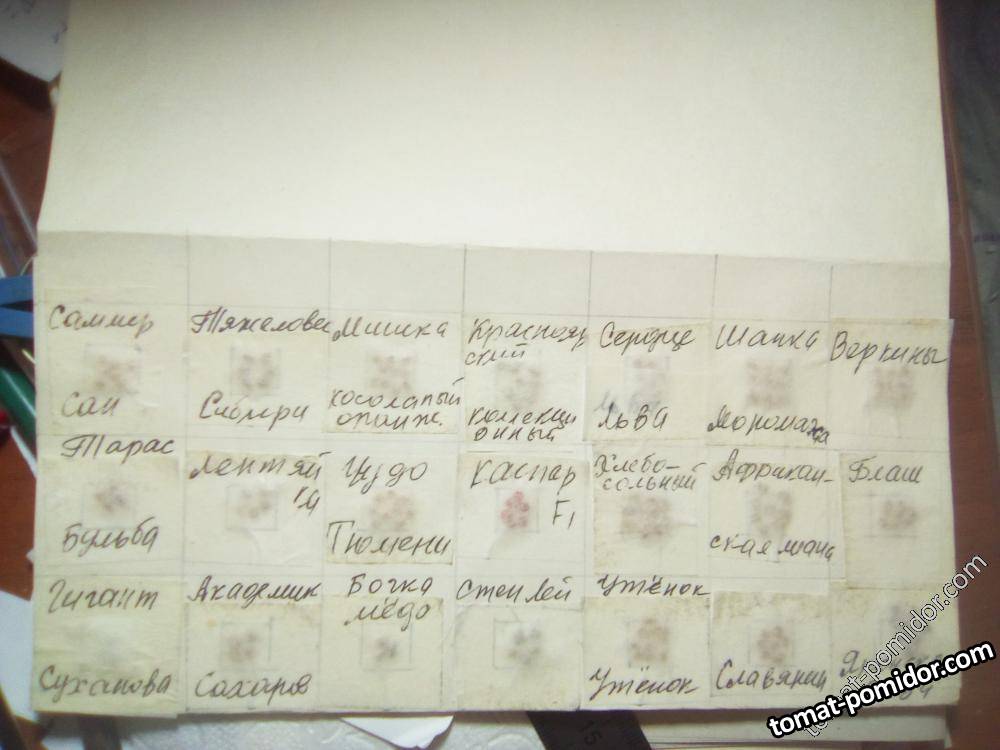 Саммер
Сан
Тяжеловес
Сибири
Мишка
косолапый
оранж.
Краснояр
ский
коллекци
онный
Сердце
Льва
Шапка
Мономаха
Веркины
Тарас
Бульба
Лентяй
ка
Чудо
Тюмени
Каспар
F1
Хлебо-
сольный
Африкан-
ская лиана
Блаш
Гигант
Суханова
Академик
Сахаров
Бочка
мёда
Стенлей
Утёнок
Утёнок
Славянин
15
tomat-pomidor.com
tomat-pomidor.com